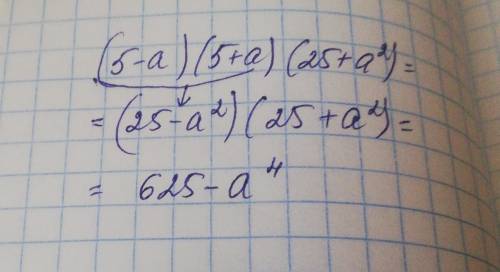 (5-a)(5+a)(25+a²)=
=(25-a²)(25+a²)=
= 625-a⁴